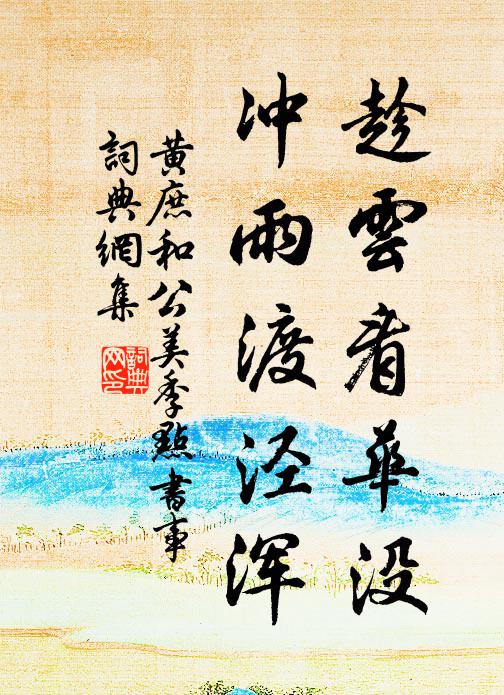 趁雲看華没
冲雨渡泾浑
黄庶和公美季點書事
詞典網集
詞典
网印